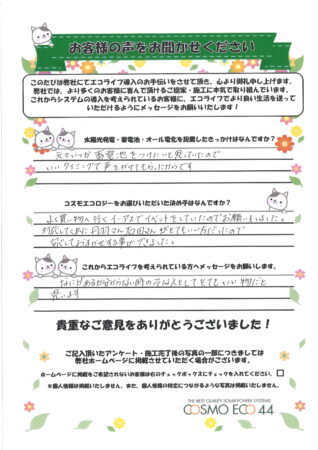 お客様の声をお聞かせください
このたびは弊社にてエコライフ導入のお手伝いをさせて頂き、心より御礼申し上げます。
弊社では、より多くのお客様に喜んで頂けるご提案・施工に本気で取り組んでいます。
これからシステムの導入を考えられているお客様に、エコライフでより良い生活を送って
いただけるようにメッセージをお願いいたします!
太陽光発電・蓄電池・オール電化を設置したきっかけはなんですか?
元々いつか蓄電池をつけたいと思っていたので
いいタイミングで声をかけてもらったからです
コスモエコロジーをお選びいただいた決め手はなんですか?
よく買い物へ行くイーアスでイベントをしていたのでお願いしました。
対応してくれた丹羽さん
さんがとてもいい方だったので
安心しておまかせする事ができました。
これからエコライフを考えられている方へメッセージをお願いします。
なにがあるか分からない時の
としてとてもいい物だと
思います
貴重なご意見をありがとうございました!
ご記入頂いたアンケート・施工完了後の写真の一部につきましては
弊社ホームページに掲載させていただく場合がございます。
ホームページに掲載をご希望されないお客様は右のチェックボックスにチェックを入れてください。
※個人情報は掲載いたしません。また、個人情報の特定につながるような写真は掲載いたしません。
THE BEST QUALITY SOLAR POWER SYSTEMS
COSMO ECO 44